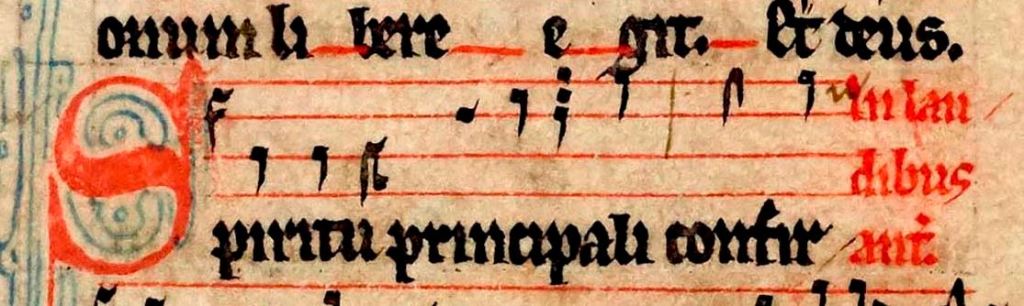 onum li bere e git. Et deus.
In lau
dibus
Spiritu principali confir ant.